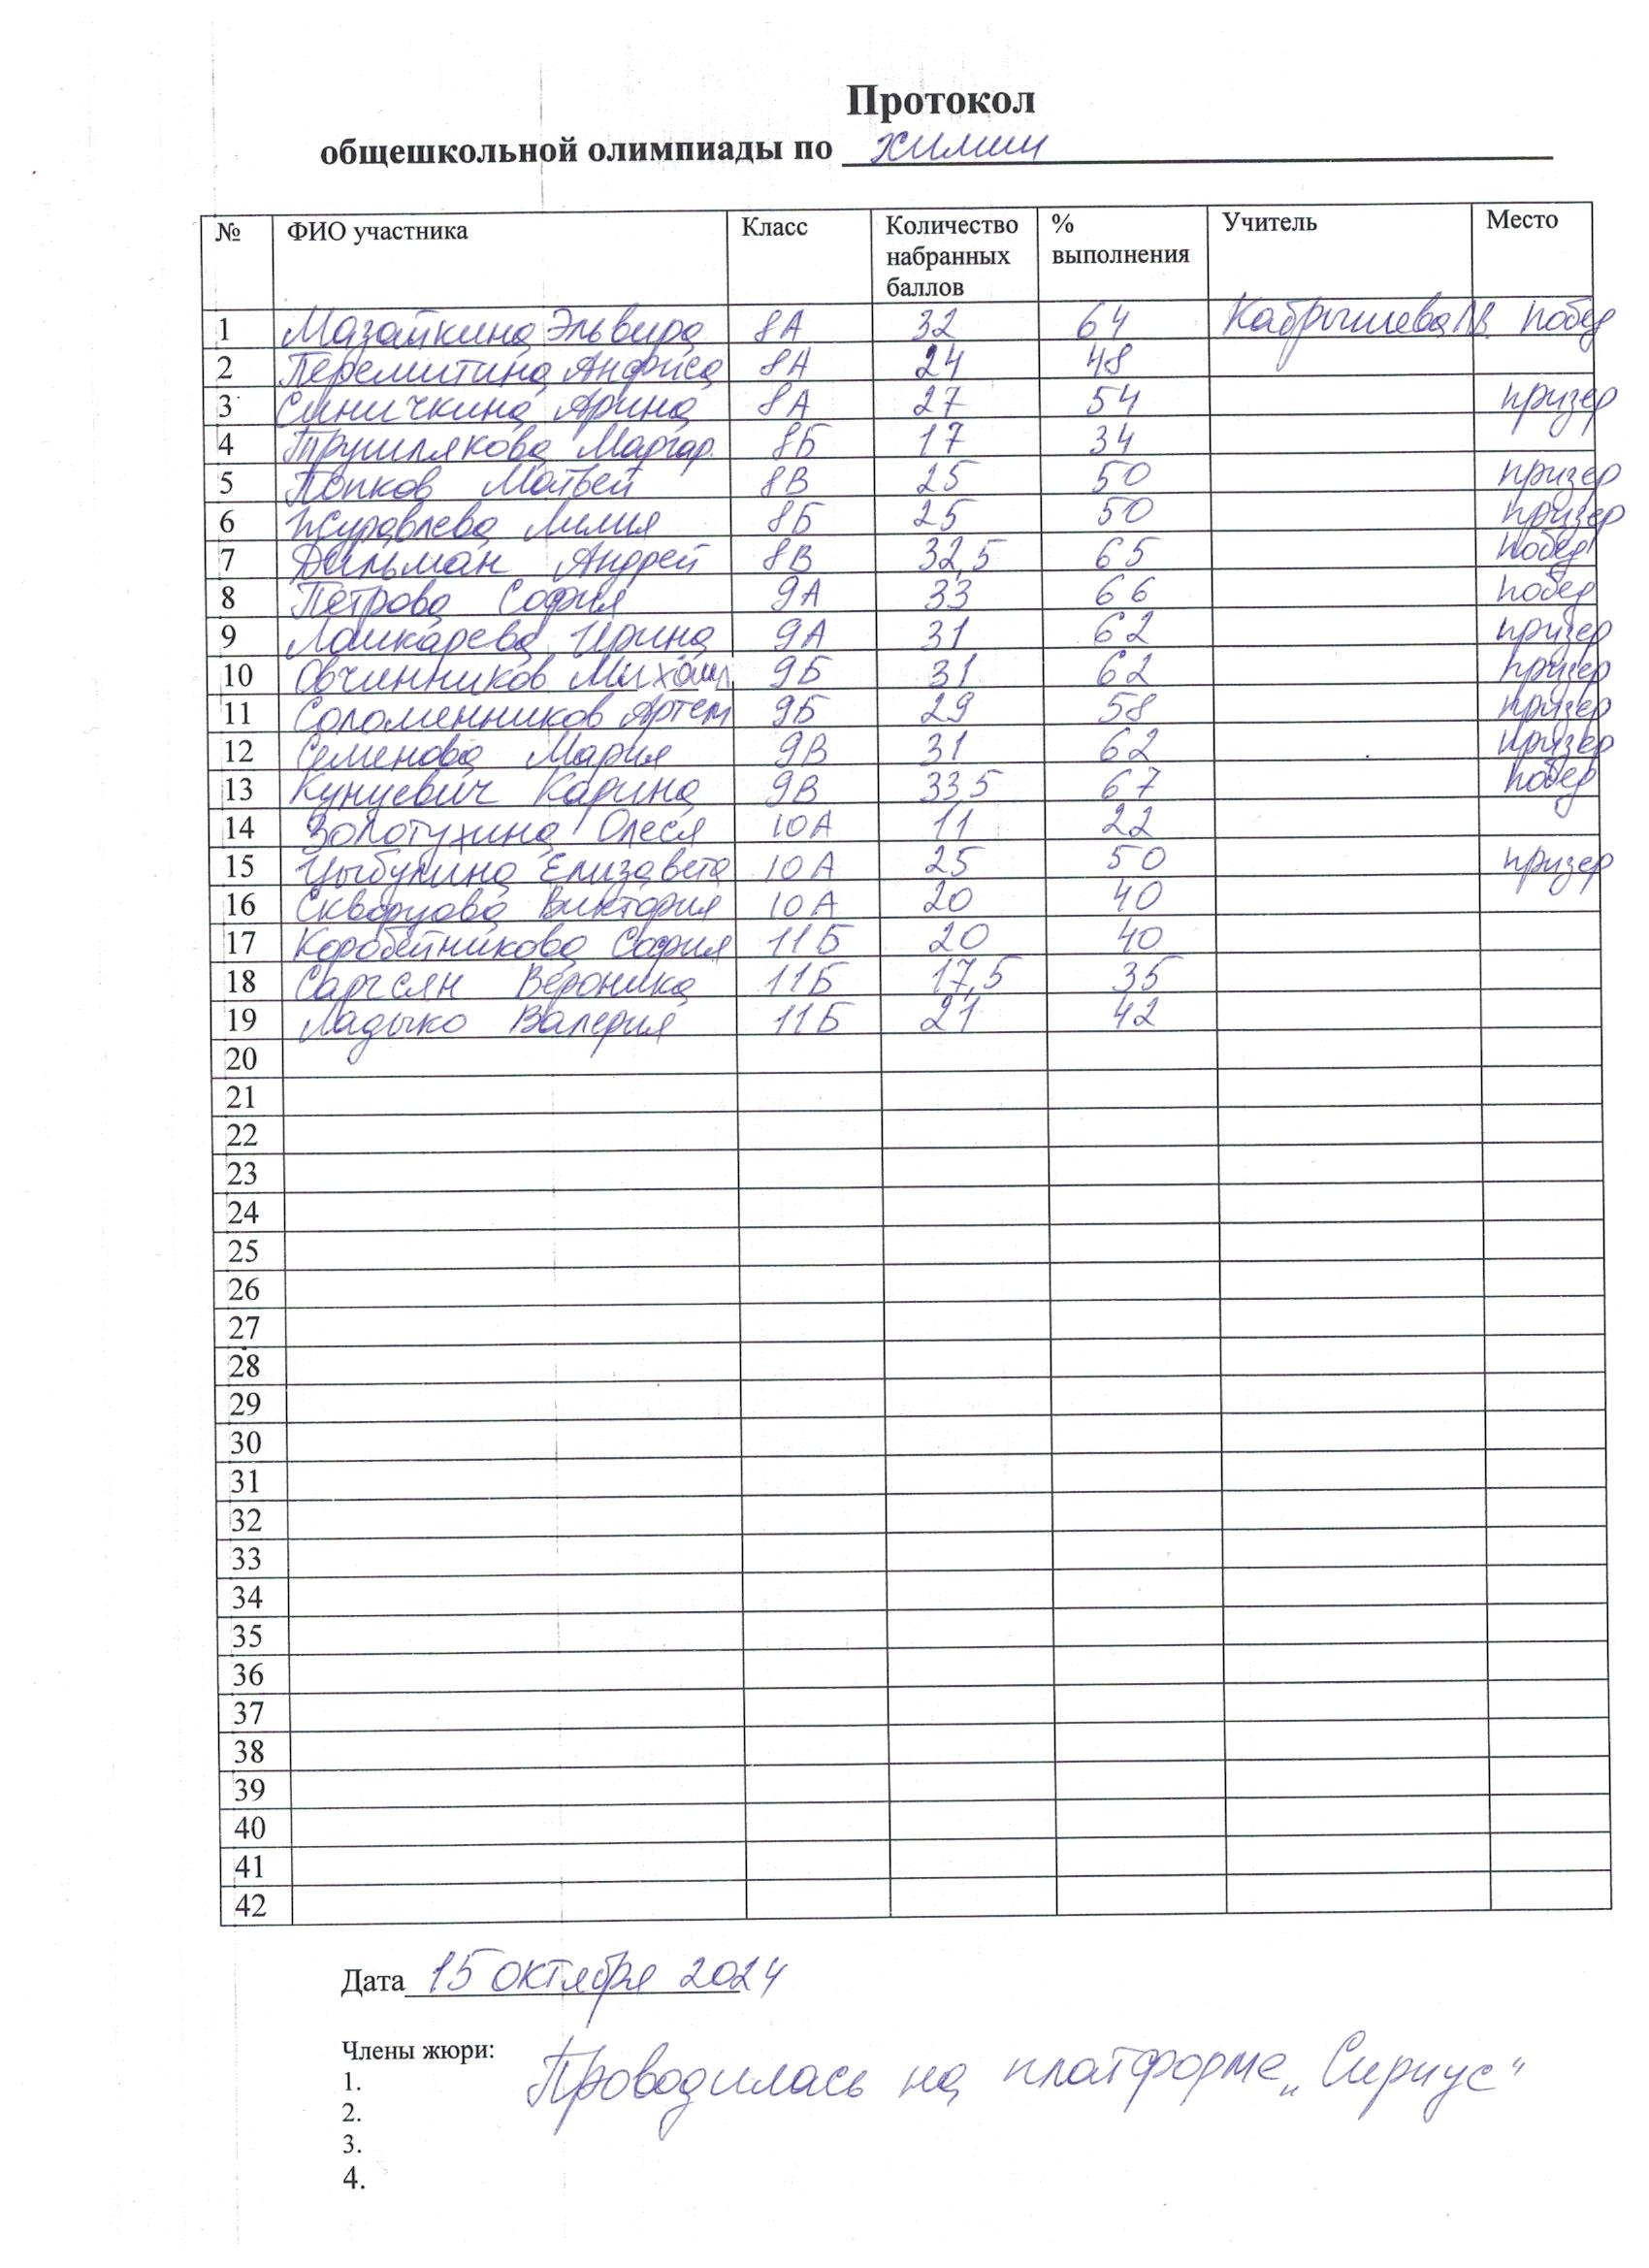 Протокол
общешкольной олимпиады по химии
№ ФИО участника Класс Количество набранных баллов % выполнения Учитель Место
1 Мазайкина Эльвира 8А 32 64 побед
2 Перемитина Анфиса 8А 24 48
3 Синичкина Арина 8А 27 54 призер
4 Трушлякова Маргар. 8Б 17 34
5 Попков Матвей 8В 25 50 призер
6 Журавлева Лилия 8Б 25 50 призер
7 Дильман Андрей 8В 32,5 65 побед
8 Петрова София 9А 33 66 побед
9 Лошкарева Ирина 9А 31 62 призер
10 Овчинников Михаил 9Б 31 62 призер
11 Соломенников Артем 9Б 29 58 призер
12 Семенова Мария 9В 31 62 призер
13 Кунцевич Карина 9В 33,5 67 побед
14 Золотухина Олеся 10А 11 22
15 Цыбулина Елизавета 10А 25 50 призер
16 Скворцова Виктория 10А 20 40
17 Коробейникова София 11Б 20 40
18 Саргсян Вероника 11Б 17,5 35
19 Ладыко Валерия 11Б 21 42
20
21
22
23
24
25
26
27
28
29
30
31
32
33
34
35
36
37
38
39
40
41
42
Дата 15 октября 2024
Члены жюри:
Проводилась на платформе „Сириус"
1.
2.
3.
4.